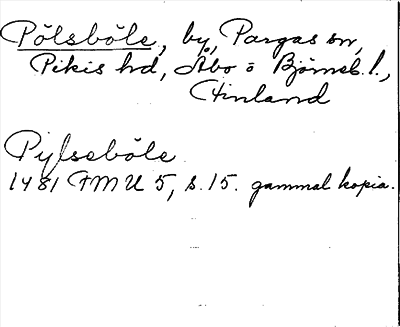 Pölsböle, by, Pargas sn,
Pikis hd, Åbo o Björneb. l.,
Finland
Pylseböle
1481 FMU 5, s. 15. gammal kopia.